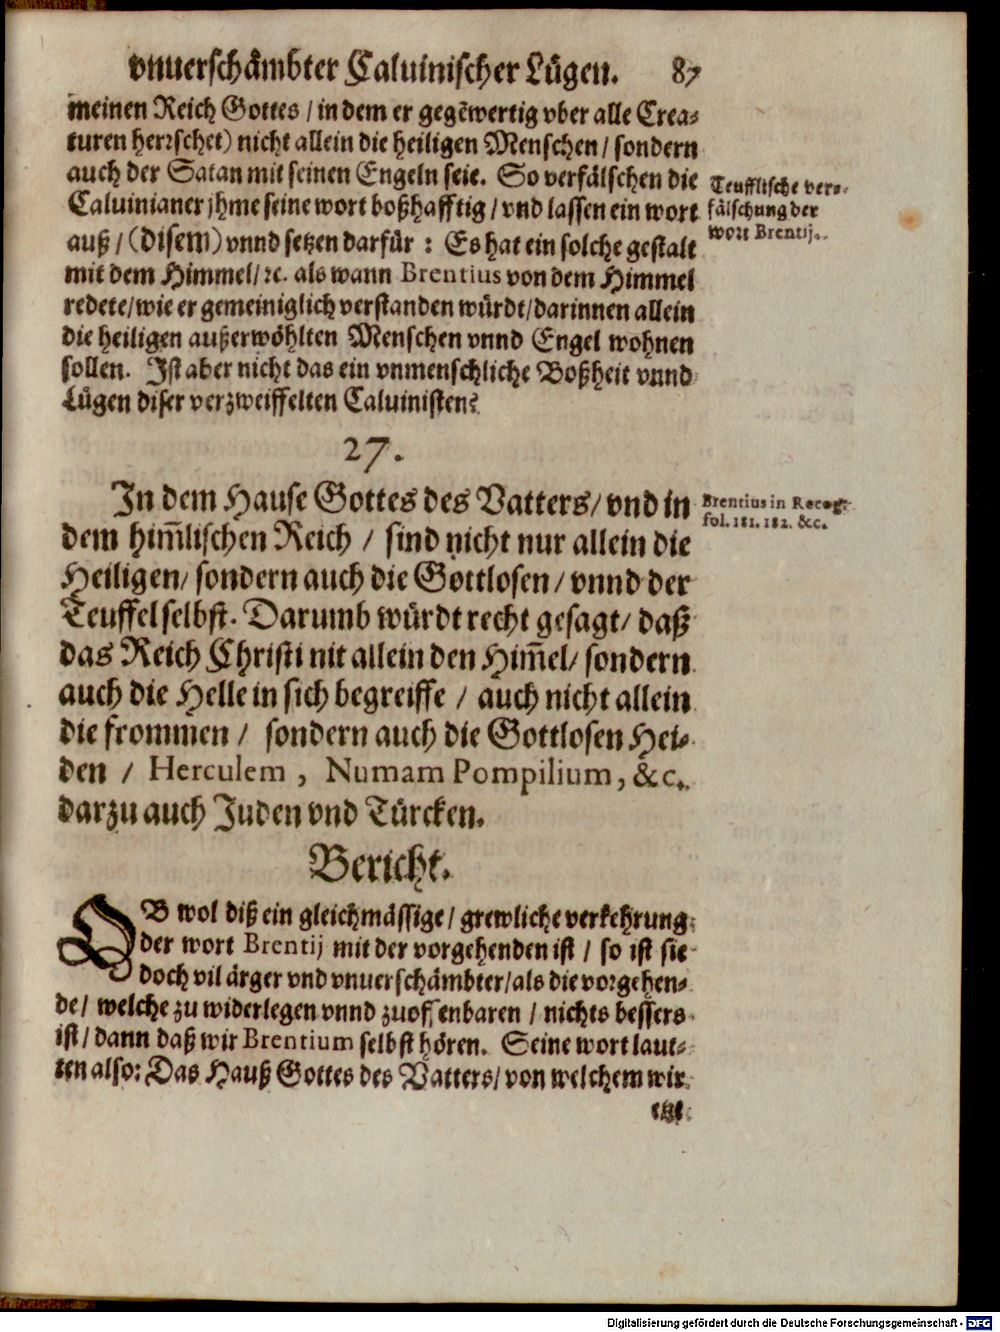 vnuerschämbter Caluinischer Lügen. 87
meinen Reich Gottes / in dem er gegēwertig vber alle Crea-
turen herrschet) nicht allein die heiligen Menschen / sondern
auch der Satan mit seinen Engeln seie. So verfälschen die
Caluinianer jhme seine wort boßhafftig / vnd lassen ein wort
auß / (disem) vnnd setzen darfür : Es hat ein solche gestalt
mit dem Himmel / ꝛc. als wann Brentius von dem Himmel
redete / wie er gemeiniglich verstanden würdt / darinnen allein
die heiligen außerwöhlten Menschen vnnd Engel wohnen
sollen. Ist aber nicht das ein vnmenschliche Boßheit vnnd
Lügen diser verzweiffelten Caluinisten?
Teufflische ver-
fälschung der
wort Brentij.
27.
In dem Hause Gottes des Vatters / vnd in
dem him̄lischen Reich / sind nicht nur allein die
Heiligen / sondern auch die Gottlosen / vnnd der
Teuffel selbst. Darumb würdt recht gesagt / daß
das Reich Christi nit allein den Him̄el / sondern
auch die Helle in sich begreiffe / auch nicht allein
die frommen / sondern auch die Gottlosen Hei-
den / Herculem, Numam Pompilium, &c.
darzu auch Juden vnd Türcken.
Brentius in Recog.
fol. 181. 182. &c.
Bericht.
OB wol diß ein gleichmässige / grewliche verkehrung
der wort Brentij mit der vorgehenden ist / so ist sie
doch vil ärger vnd vnuerschämbter / als die vorgehen-
de / welche zu widerlegen vnnd zuoffenbaren / nichts bessers
ist / dann daß wir Brentium selbst hören. Seine wort laut-
ten also: Das Hauß Gottes des Vatters / von welchem wir
Digitalisierung gefördert durch die Deutsche Forschungsgemeinschaft - DFG